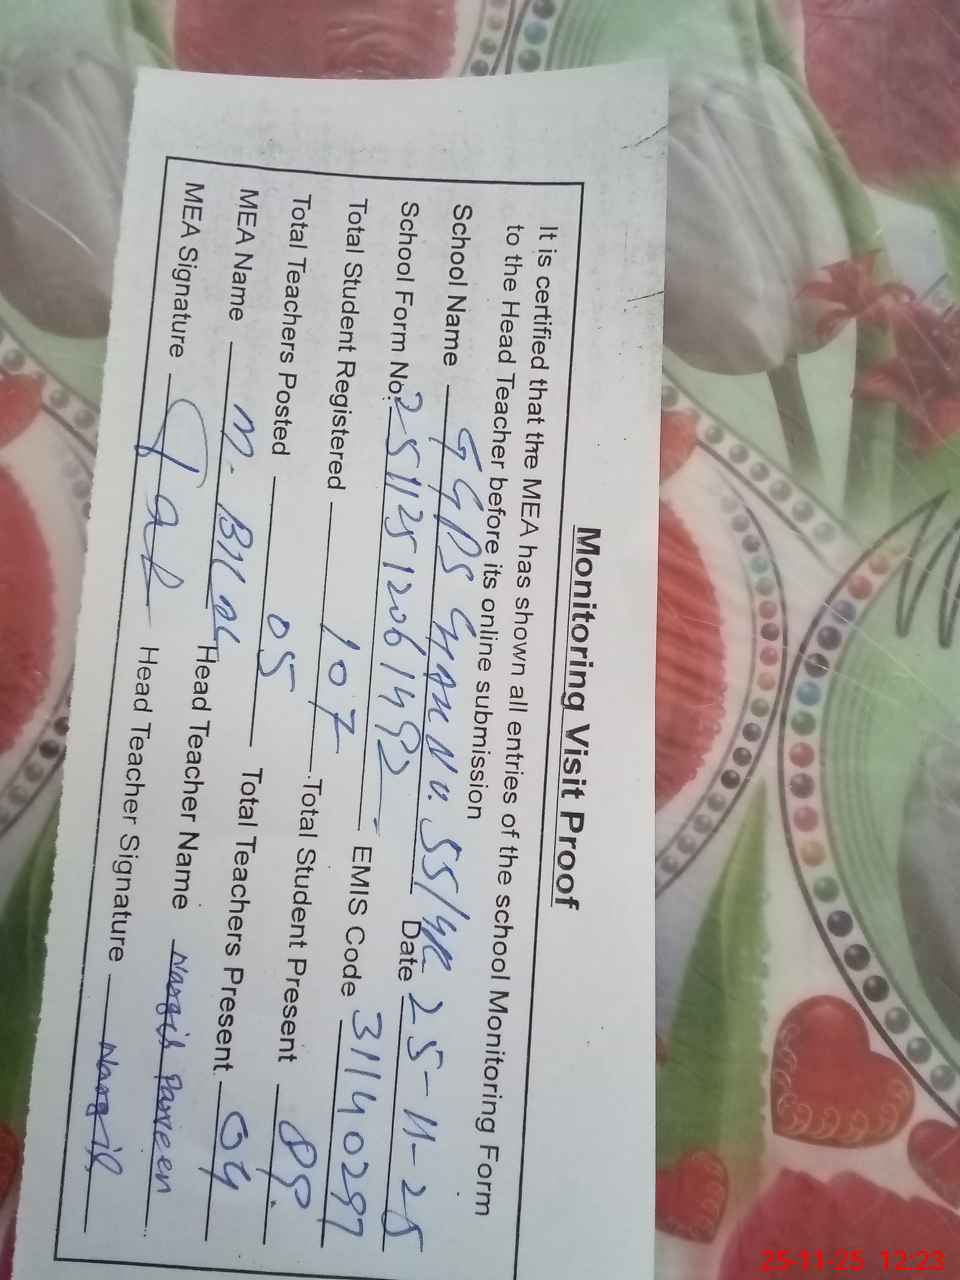 Monitoring Visit Proof
It is certified that the MEA has shown all entries of the school Monitoring Form
to the Head Teacher before its online submission
School Name GGPS CHAK No. 55/4R Date 25-11-25
School Form No. 25112512061492 EMIS Code 31140297
Total Student Registered 107 Total Student Present 89
Total Teachers Posted 05 Total Teachers Present 04
MEA Name M. Head Teacher Name Nargis Parveen
MEA Signature Head Teacher Signature Nargis
25-11-25 12:23